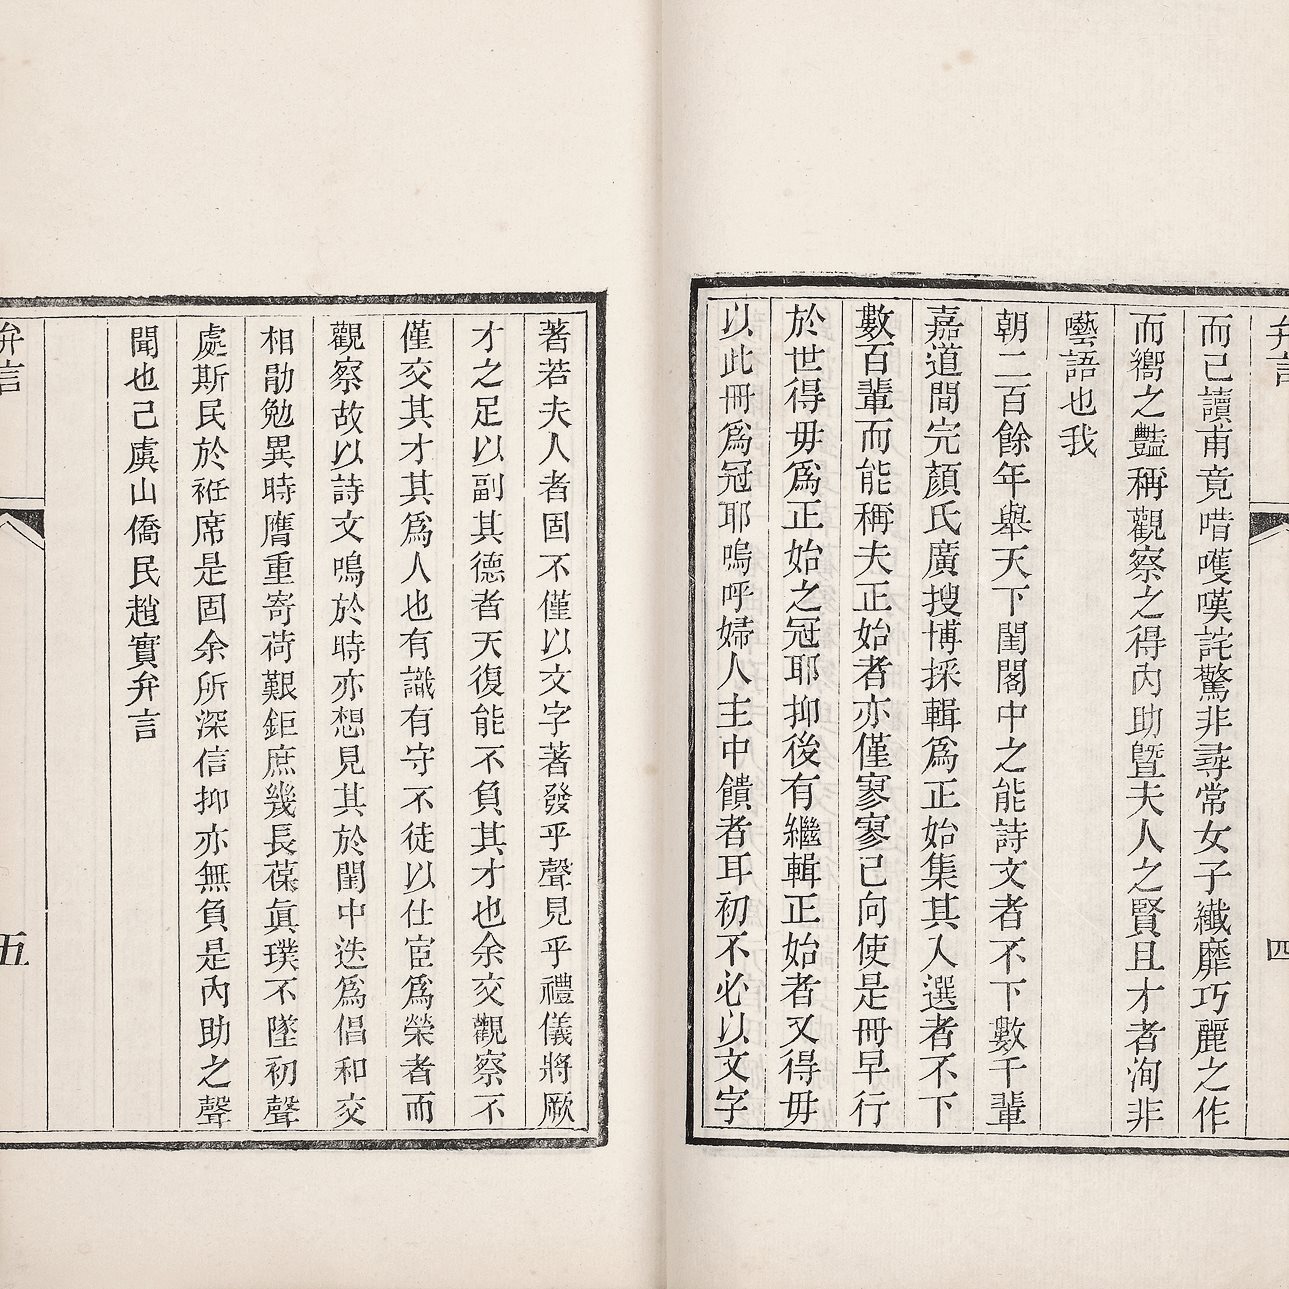 弁言
四
而已讀甫竟唶嚄嘆詫驚非尋常女子纖靡巧麗之作
而嚮之豔稱觀察之得內助曁夫人之賢且才者洵非
囈語也我
朝二百餘年舉天下閨閣中之能詩文者不下數千輩
嘉道間完顏氏廣搜博採輯爲正始集其入選者不下
數百輩而能稱夫正始者亦僅寥寥已向使是冊早行
於世得毋爲正始之冠耶抑後有繼輯正始者又得毋
以此冊爲冠耶嗚呼婦人主中饋者耳初不必以文字
著若夫人者固不僅以文字著發乎聲見乎禮儀將厥
才之足以副其德者天復能不負其才也余交觀察不
僅交其才其爲人也有識有守不徒以仕宦爲榮者而
觀察故以詩文鳴於時亦想見其於閨中迭爲倡和交
相勖勉異時膺重寄荷艱鉅庶幾長葆眞璞不墜初聲
處斯民於袵席是固余所深信抑亦無負是內助之聲
聞也已虞山僑民趙實弁言
弁言
五